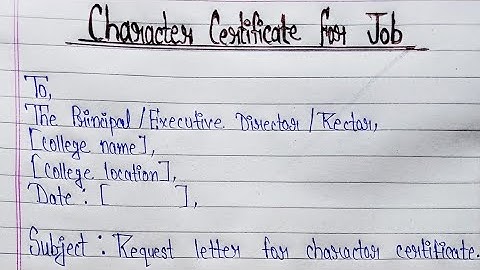 Character Certificate for Job
To,
The Principal/Executive Director/Rector,
[college name],
[college location],
Date : [ ],
Subject : Request letter for charactor certificate.